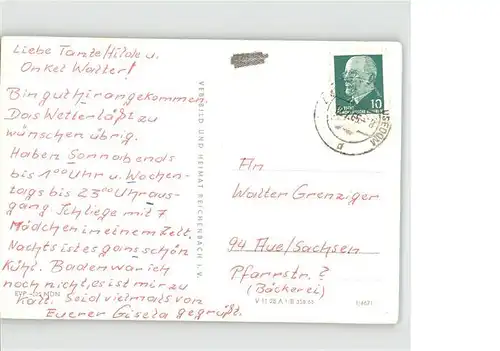 Liebe Tante Hilde u.
Onkel Walter!
Bin gut hir angekommen.
Das Wetter läßt zu
wünschen übrig.
Haben Sonnabends
bis 1⁰⁰ Uhr u. Wochen-
tags bis 23⁰⁰ Uhr aus-
gang. Schliefe mit 7
Mädchen in einem Zelt.
Nachts ist es gans schön
kühl. Baden war ich
noch nicht, es ist mir zu
kalt. Seid vielmals von
Eurer Gisela gegrüßt.
EVP
MDN
VEB BILD UND HEIMAT REICHENBACH i. V.
10
USEDOM
An
Walter Grenziger
94 Aue/Sachsen
Pfarrstr. ?
(Bäckerei)
V 11 28 A 1/B